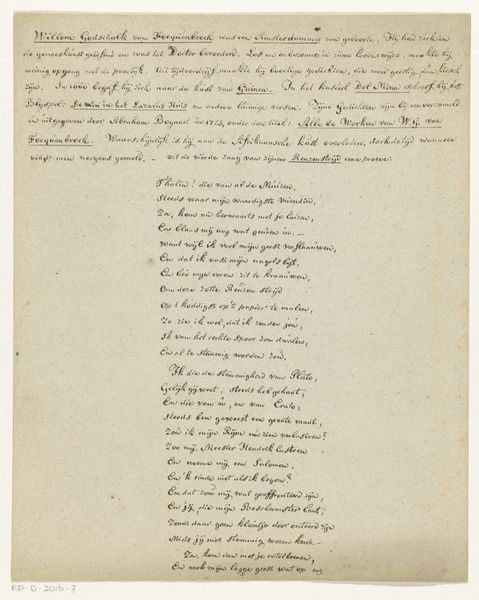 Willem Godschalk van Focquenbroch was een Amsterdammer van geboorte. Hij had zich in
de geneeskunst geoefend en was tot Doctor bevorderd. Los en onbezonnen in zijne levenswijze, maakte hij
weinig opgang met de practijk. Uit tijdverdrijf maakte hij boertige gedichten, die meer geestig dan kiesch
zijn. In 1666 begaf hij zich naar de kust van Guinea. In het kasteel Del Mina schreef hij het
Blijspel: De min in het Lazarus Huis en andere luimige verzen. Zijne Gedichten zijn bij een verzameld
en uitgegeven door Abraham Bogaart in 1723, onder den titel: Alle de Werken van W. G. van
Focquenbroch. Waarschijnlijk is hij aan de Afrikaansche kust overleden, doch de tijd wanneer
vindt men nergens gemeld. – uit de vierde zang van zijnen Reuzenstrijd eene proeve:
Thalia! die van al de Muizen,
Steeds waar mijn waardigste Vriendin,
Za, kom nu herwaarts met je luizen,
En blaas mij nog wat geuren in. –
Want wijl ik voel mijn geest verflaauwen,
En dat ik vast mijn nagels bijt,
En bei mijn ooren zit te kraauwen,
Om deze zotte Reuzen strijd
Op 't koddigst op 't papier te malen,
Zo zie ik wel, dat ik zonder jou,
Ik van het rechte spoor zou dwalen,
En al te stemmig worden zou.
Ik die de stemmigheid van Pluto,
Gelijk gij weet, steeds heb gehaat,
En die van u, en van Erato,
Steeds ben geweest een groote maat,
Zou ik mijn Rijm nu zien verbastren?
Zoo mij Meester Hendrik lastren
En noeme mij een Salomon,
En 'k einde niet als ik begon?
En dat zou mij wat geaffronteerd zijn,
En jij, die mijn Beschermster bent,
Zoudt daar geen kleintje door onteerd zijn
Mids jij niet stemmig wezen kent. –
Za, kom dan met je ratelbeenen,
En wek mijn logge geest wat op en
RP-D-2016-7